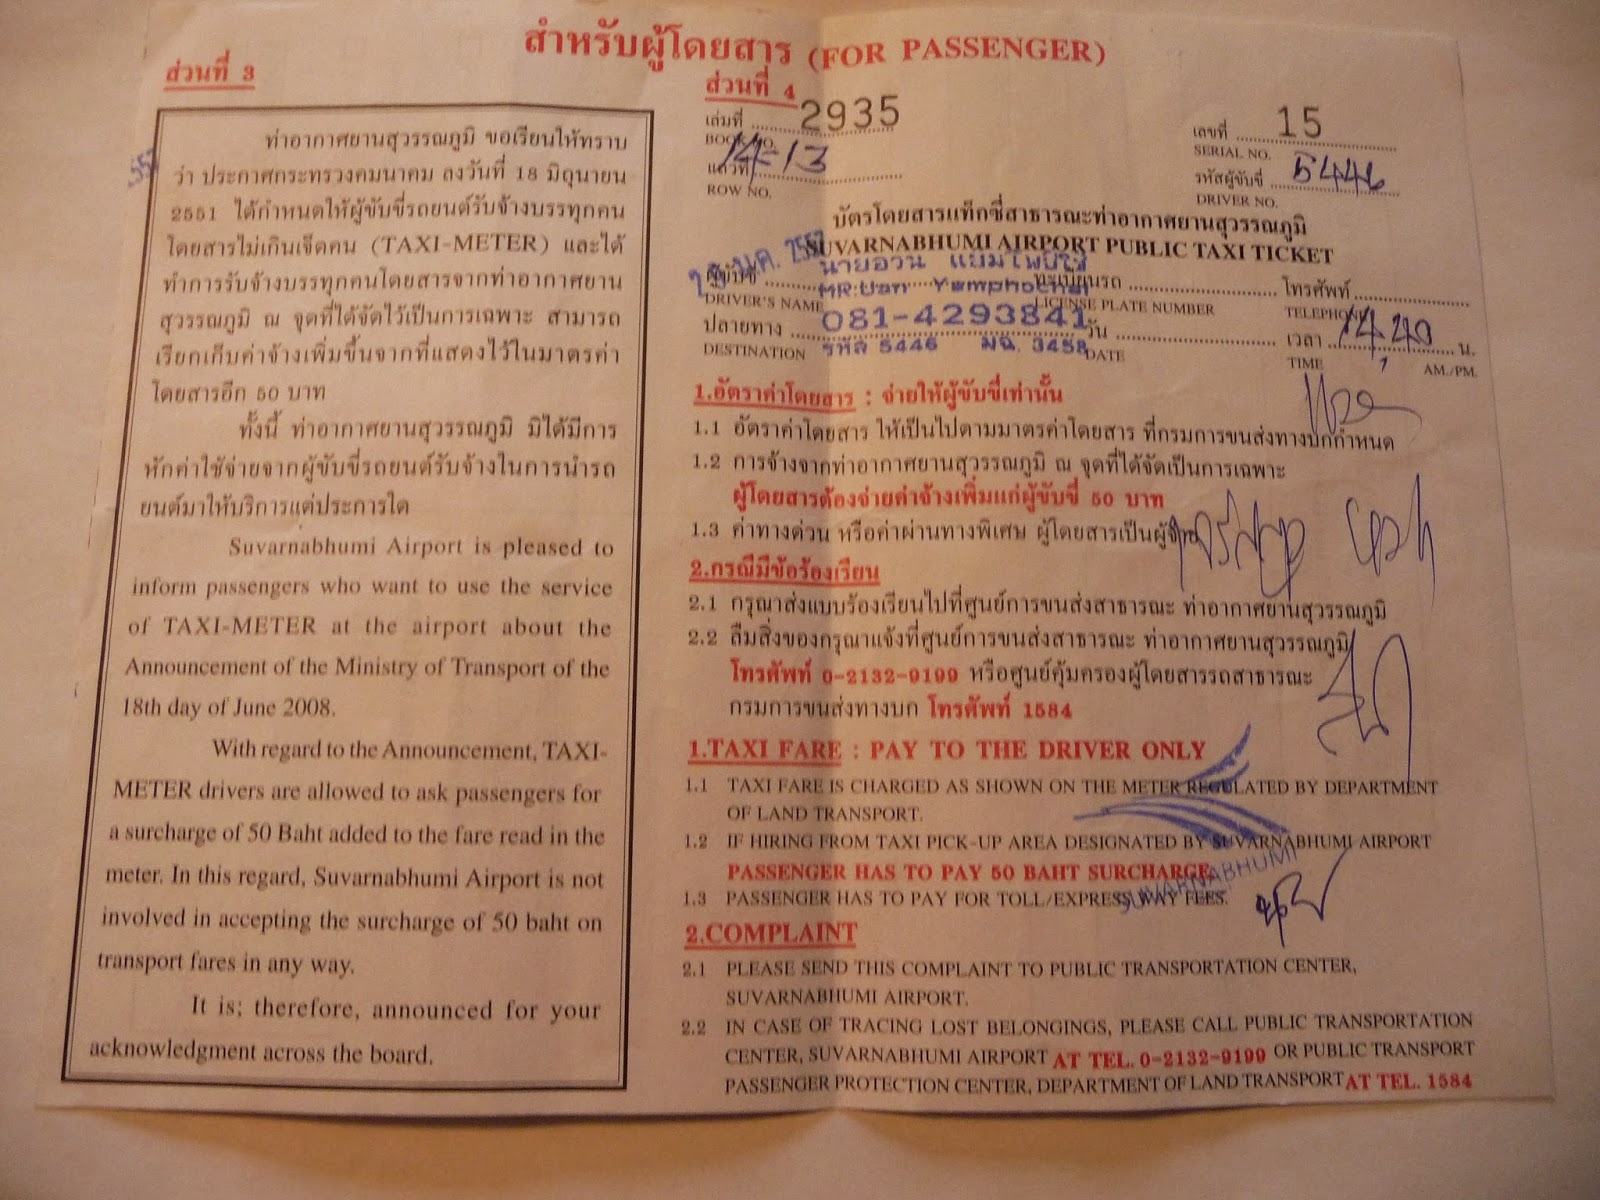 สำหรับผู้โดยสาร (FOR PASSENGER)
ส่วนที่ 3
ท่าอากาศยานสุวรรณภูมิ ขอเรียนให้ทราบ
ว่า ประกาศกระทรวงคมนาคม ลงวันที่ 18 มิถุนายน
2551 ได้กำหนดให้ผู้ขับขี่รถยนต์รับจ้างบรรทุกคน
โดยสารไม่เกินเจ็ดคน (TAXI-METER) และได้
ทำการรับจ้างบรรทุกคนโดยสารจากท่าอากาศยาน
สุวรรณภูมิ ณ จุดที่ได้จัดไว้เป็นการเฉพาะ สามารถ
เรียกเก็บค่าจ้างเพิ่มขึ้นจากที่แสดงไว้ในมาตรค่า
โดยสารอีก 50 บาท
ทั้งนี้ ท่าอากาศยานสุวรรณภูมิ มิได้มีการ
หักค่าใช้จ่ายจากผู้ขับขี่รถยนต์รับจ้างในการนำรถ
ยนต์มาให้บริการแต่ประการใด
Suvarnabhumi Airport is pleased to
inform passengers who want to use the service
of TAXI-METER at the airport about the
Announcement of the Ministry of Transport of the
18th day of June 2008.
With regard to the Announcement, TAXI-
METER drivers are allowed to ask passengers for
a surcharge of 50 Baht added to the fare read in the
meter. In this regard, Suvarnabhumi Airport is not
involved in accepting the surcharge of 50 baht on
transport fares in any way.
It is; therefore, announced for your
acknowledgment across the board.
ส่วนที่ 4
เล่มที่ 2935 เลขที่ 15
BOOK NO. SERIAL NO.
แถวที่ 14-13 รหัสผู้ขับขี่ 5446
ROW NO. DRIVER NO.
บัตรโดยสารแท็กซี่สาธารณะท่าอากาศยานสุวรรณภูมิ
SUVARNABHUMI AIRPORT PUBLIC TAXI TICKET
ผู้ขับขี่ นายอวน ทะเบียนรถ โทรศัพท์
DRIVER'S NAME MR.Uan LICENSE PLATE NUMBER TELEPHONE
ปลายทาง 081-4293841 วัน เวลา 14.40 น.
DESTINATION รหัส 5446 มฉ. 3458 DATE TIME AM./PM.
1.อัตราค่าโดยสาร : จ่ายให้ผู้ขับขี่เท่านั้น
1.1 อัตราค่าโดยสาร ให้เป็นไปตามมาตรค่าโดยสาร ที่กรมการขนส่งทางบกกำหนด
1.2 การจ้างจากท่าอากาศยานสุวรรณภูมิ ณ จุดที่ได้จัดเป็นการเฉพาะ
ผู้โดยสารต้องจ่ายค่าจ้างเพิ่มแก่ผู้ขับขี่ 50 บาท
1.3 ค่าทางด่วน หรือค่าผ่านทางพิเศษ ผู้โดยสารเป็นผู้จ่าย
2.กรณีมีข้อร้องเรียน
2.1 กรุณาส่งแบบร้องเรียนไปที่ศูนย์การขนส่งสาธารณะ ท่าอากาศยานสุวรรณภูมิ
2.2 ลืมสิ่งของกรุณาแจ้งที่ศูนย์การขนส่งสาธารณะ ท่าอากาศยานสุวรรณภูมิ
โทรศัพท์ 0-2132-9199 หรือศูนย์คุ้มครองผู้โดยสารรถสาธารณะ
กรมการขนส่งทางบก โทรศัพท์ 1584
1.TAXI FARE : PAY TO THE DRIVER ONLY
1.1 TAXI FARE IS CHARGED AS SHOWN ON THE METER REGULATED BY DEPARTMENT
OF LAND TRANSPORT.
1.2 IF HIRING FROM TAXI PICK-UP AREA DESIGNATED BY SUVARNABHUMI AIRPORT
PASSENGER HAS TO PAY 50 BAHT SURCHARGE.
SUVARNABHUMI
1.3 PASSENGER HAS TO PAY FOR TOLL/EXPRESS WAY FEES.
2.COMPLAINT
2.1 PLEASE SEND THIS COMPLAINT TO PUBLIC TRANSPORTATION CENTER,
SUVARNABHUMI AIRPORT.
2.2 IN CASE OF TRACING LOST BELONGINGS, PLEASE CALL PUBLIC TRANSPORTATION
CENTER, SUVARNABHUMI AIRPORT AT TEL. 0-2132-9199 OR PUBLIC TRANSPORT
PASSENGER PROTECTION CENTER, DEPARTMENT OF LAND TRANSPORT AT TEL. 1584